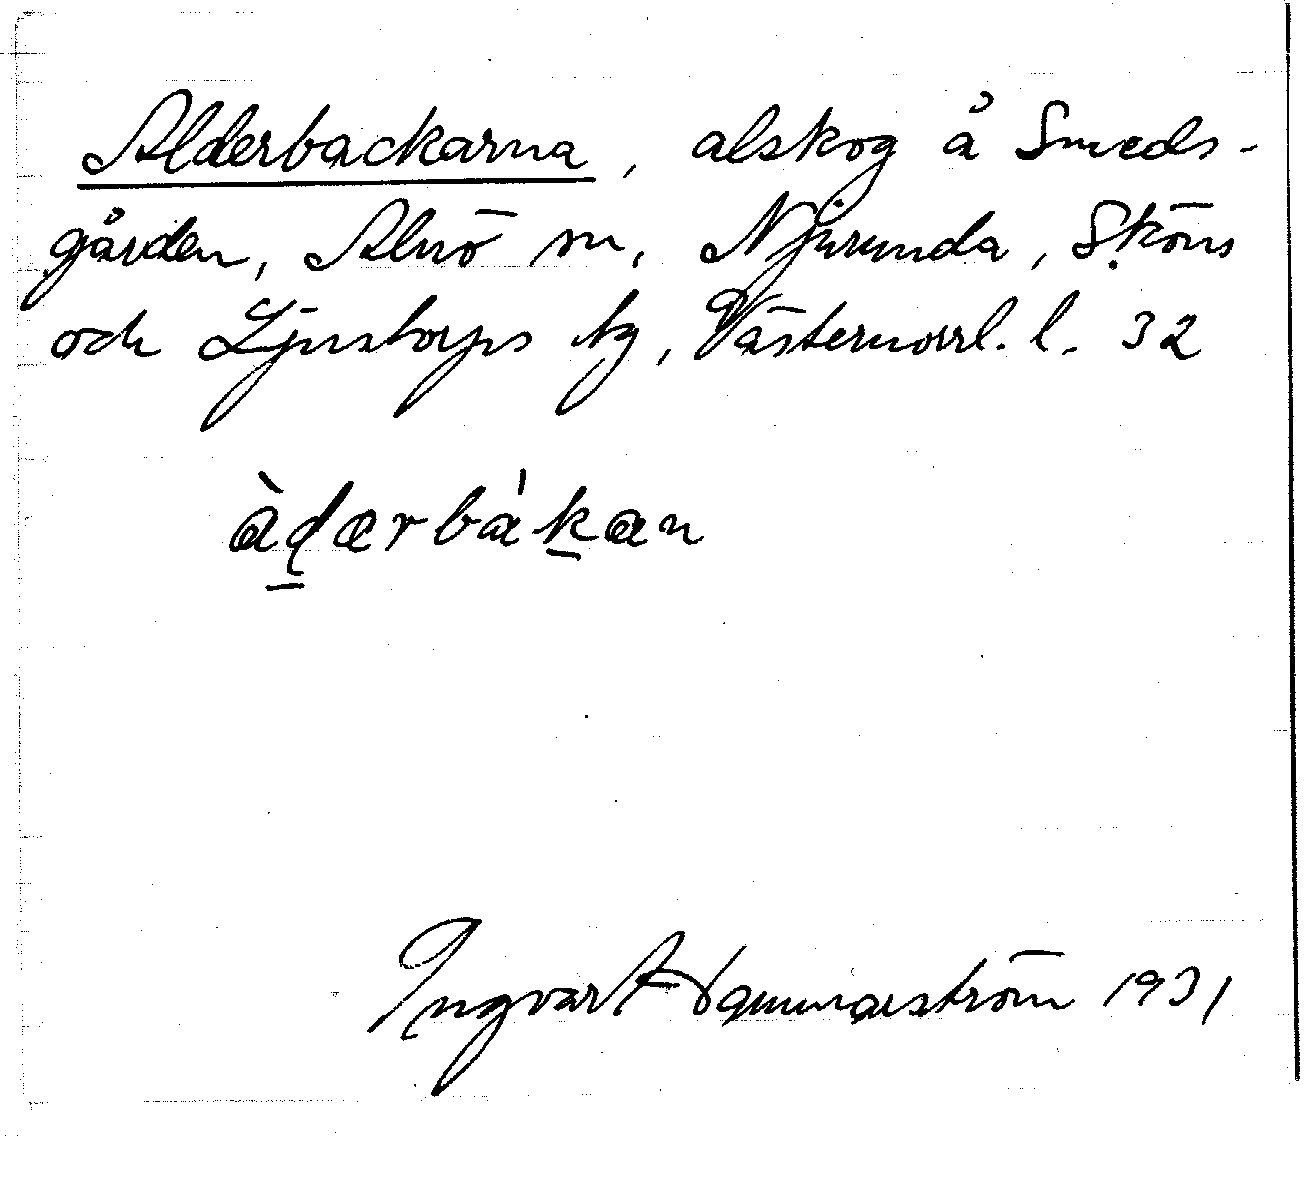 Alderbackarna, alskog å Smeds-
gården, Alnö sn, Njurunda, Sköns
och Ljustorps tg, Västernorrl. l. 32
àdærbákan
Ingvar Hammarström 1931